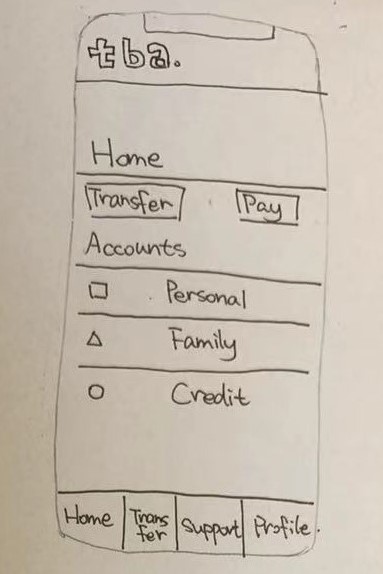 tba.
Home
Transfer Pay
Accounts
Personal
Family
Credit
Home Trans Support Profile
fer